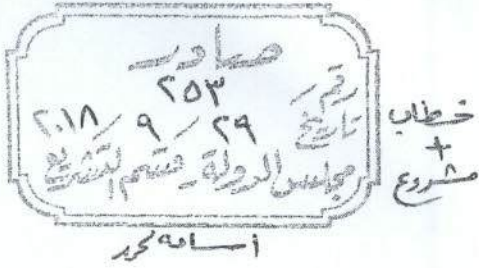 صادر
رقم ٢٥٣
تاريخ ٢٩ / ٩ / ٢٠١٨
مجلس الدولة - قسم التشريع
خطاب
+
مشروع
أسامة محمد